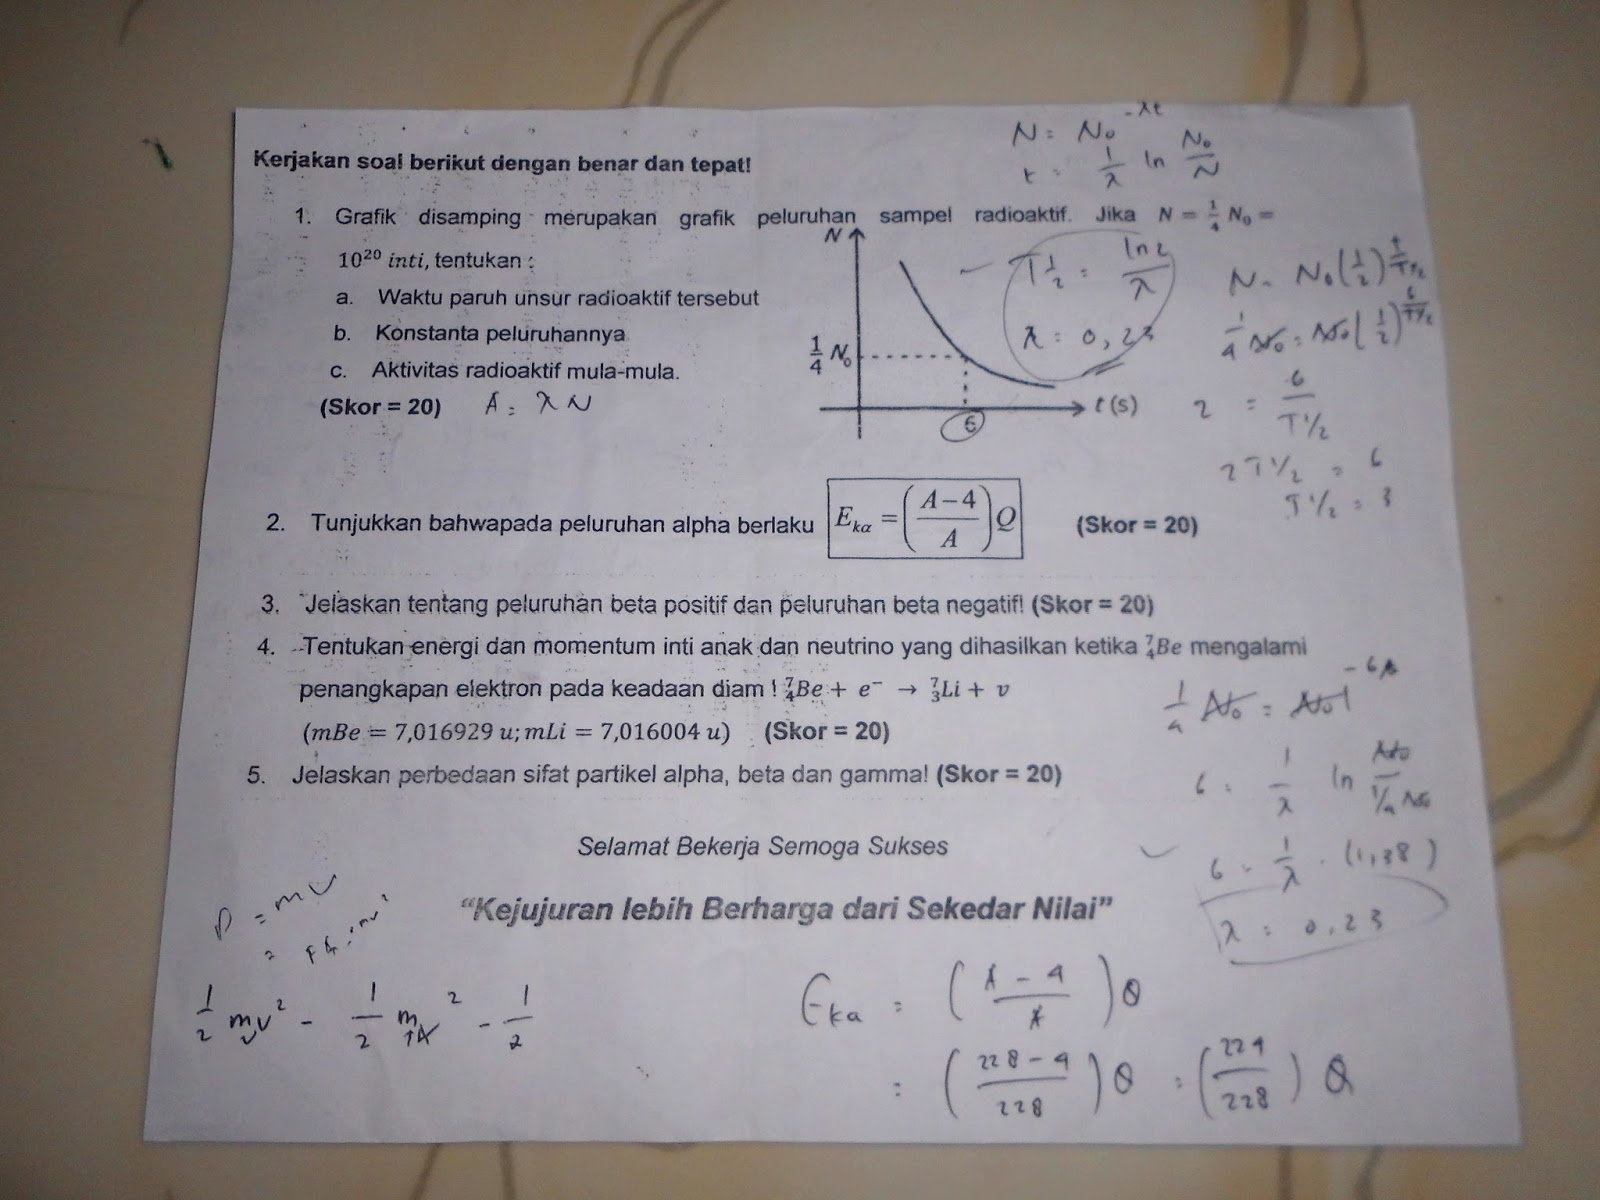 Kerjakan soal berikut dengan benar dan tepat!
1. Grafik disamping merupakan grafik peluruhan sampel radioaktif. Jika N = 1/4 N₀ =
10²⁰ inti, tentukan :
a. Waktu paruh unsur radioaktif tersebut
b. Konstanta peluruhannya
c. Aktivitas radioaktif mula-mula.
(Skor = 20) A = λ N
N
1/4 N₀
6
t (s)
N = N₀ -λt
t = 1/λ ln N₀/N
T 1/2 = ln 2/λ
λ = 0,23
N = N₀ (1/2)^t/T½
1/4 N₀ = N₀ (1/2)^6/T½
2 = 6/T½
2 T½ = 6
T½ = 3
2. Tunjukkan bahwapada peluruhan alpha berlaku E_kα = ((A − 4)/A) Q (Skor = 20)
3. Jelaskan tentang peluruhan beta positif dan peluruhan beta negatif! (Skor = 20)
4. Tentukan energi dan momentum inti anak dan neutrino yang dihasilkan ketika ⁷₄Be mengalami
penangkapan elektron pada keadaan diam ! ⁷₄Be + e⁻ → ⁷₃Li + ν
(mBe = 7,016929 u; mLi = 7,016004 u) (Skor = 20)
5. Jelaskan perbedaan sifat partikel alpha, beta dan gamma! (Skor = 20)
6 = 1/λ ln N₀/¼ N₀
6 = 1/λ . (1,38)
λ = 0,23
Selamat Bekerja Semoga Sukses
“Kejujuran lebih Berharga dari Sekedar Nilai”
p = mv
Eka = ((A - 4)/A) Q
= ((228 - 4)/228) Q = (224/228) Q